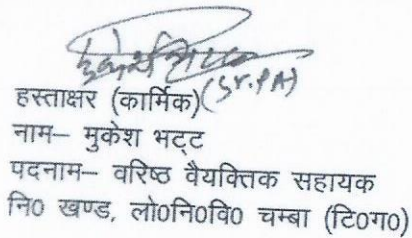 हस्ताक्षर (कार्मिक) (Sr.PA)
नाम– मुकेश भट्ट
पदनाम– वरिष्ठ वैयक्तिक सहायक
नि0 खण्ड, लो0नि0वि0 चम्बा (टि0ग0)